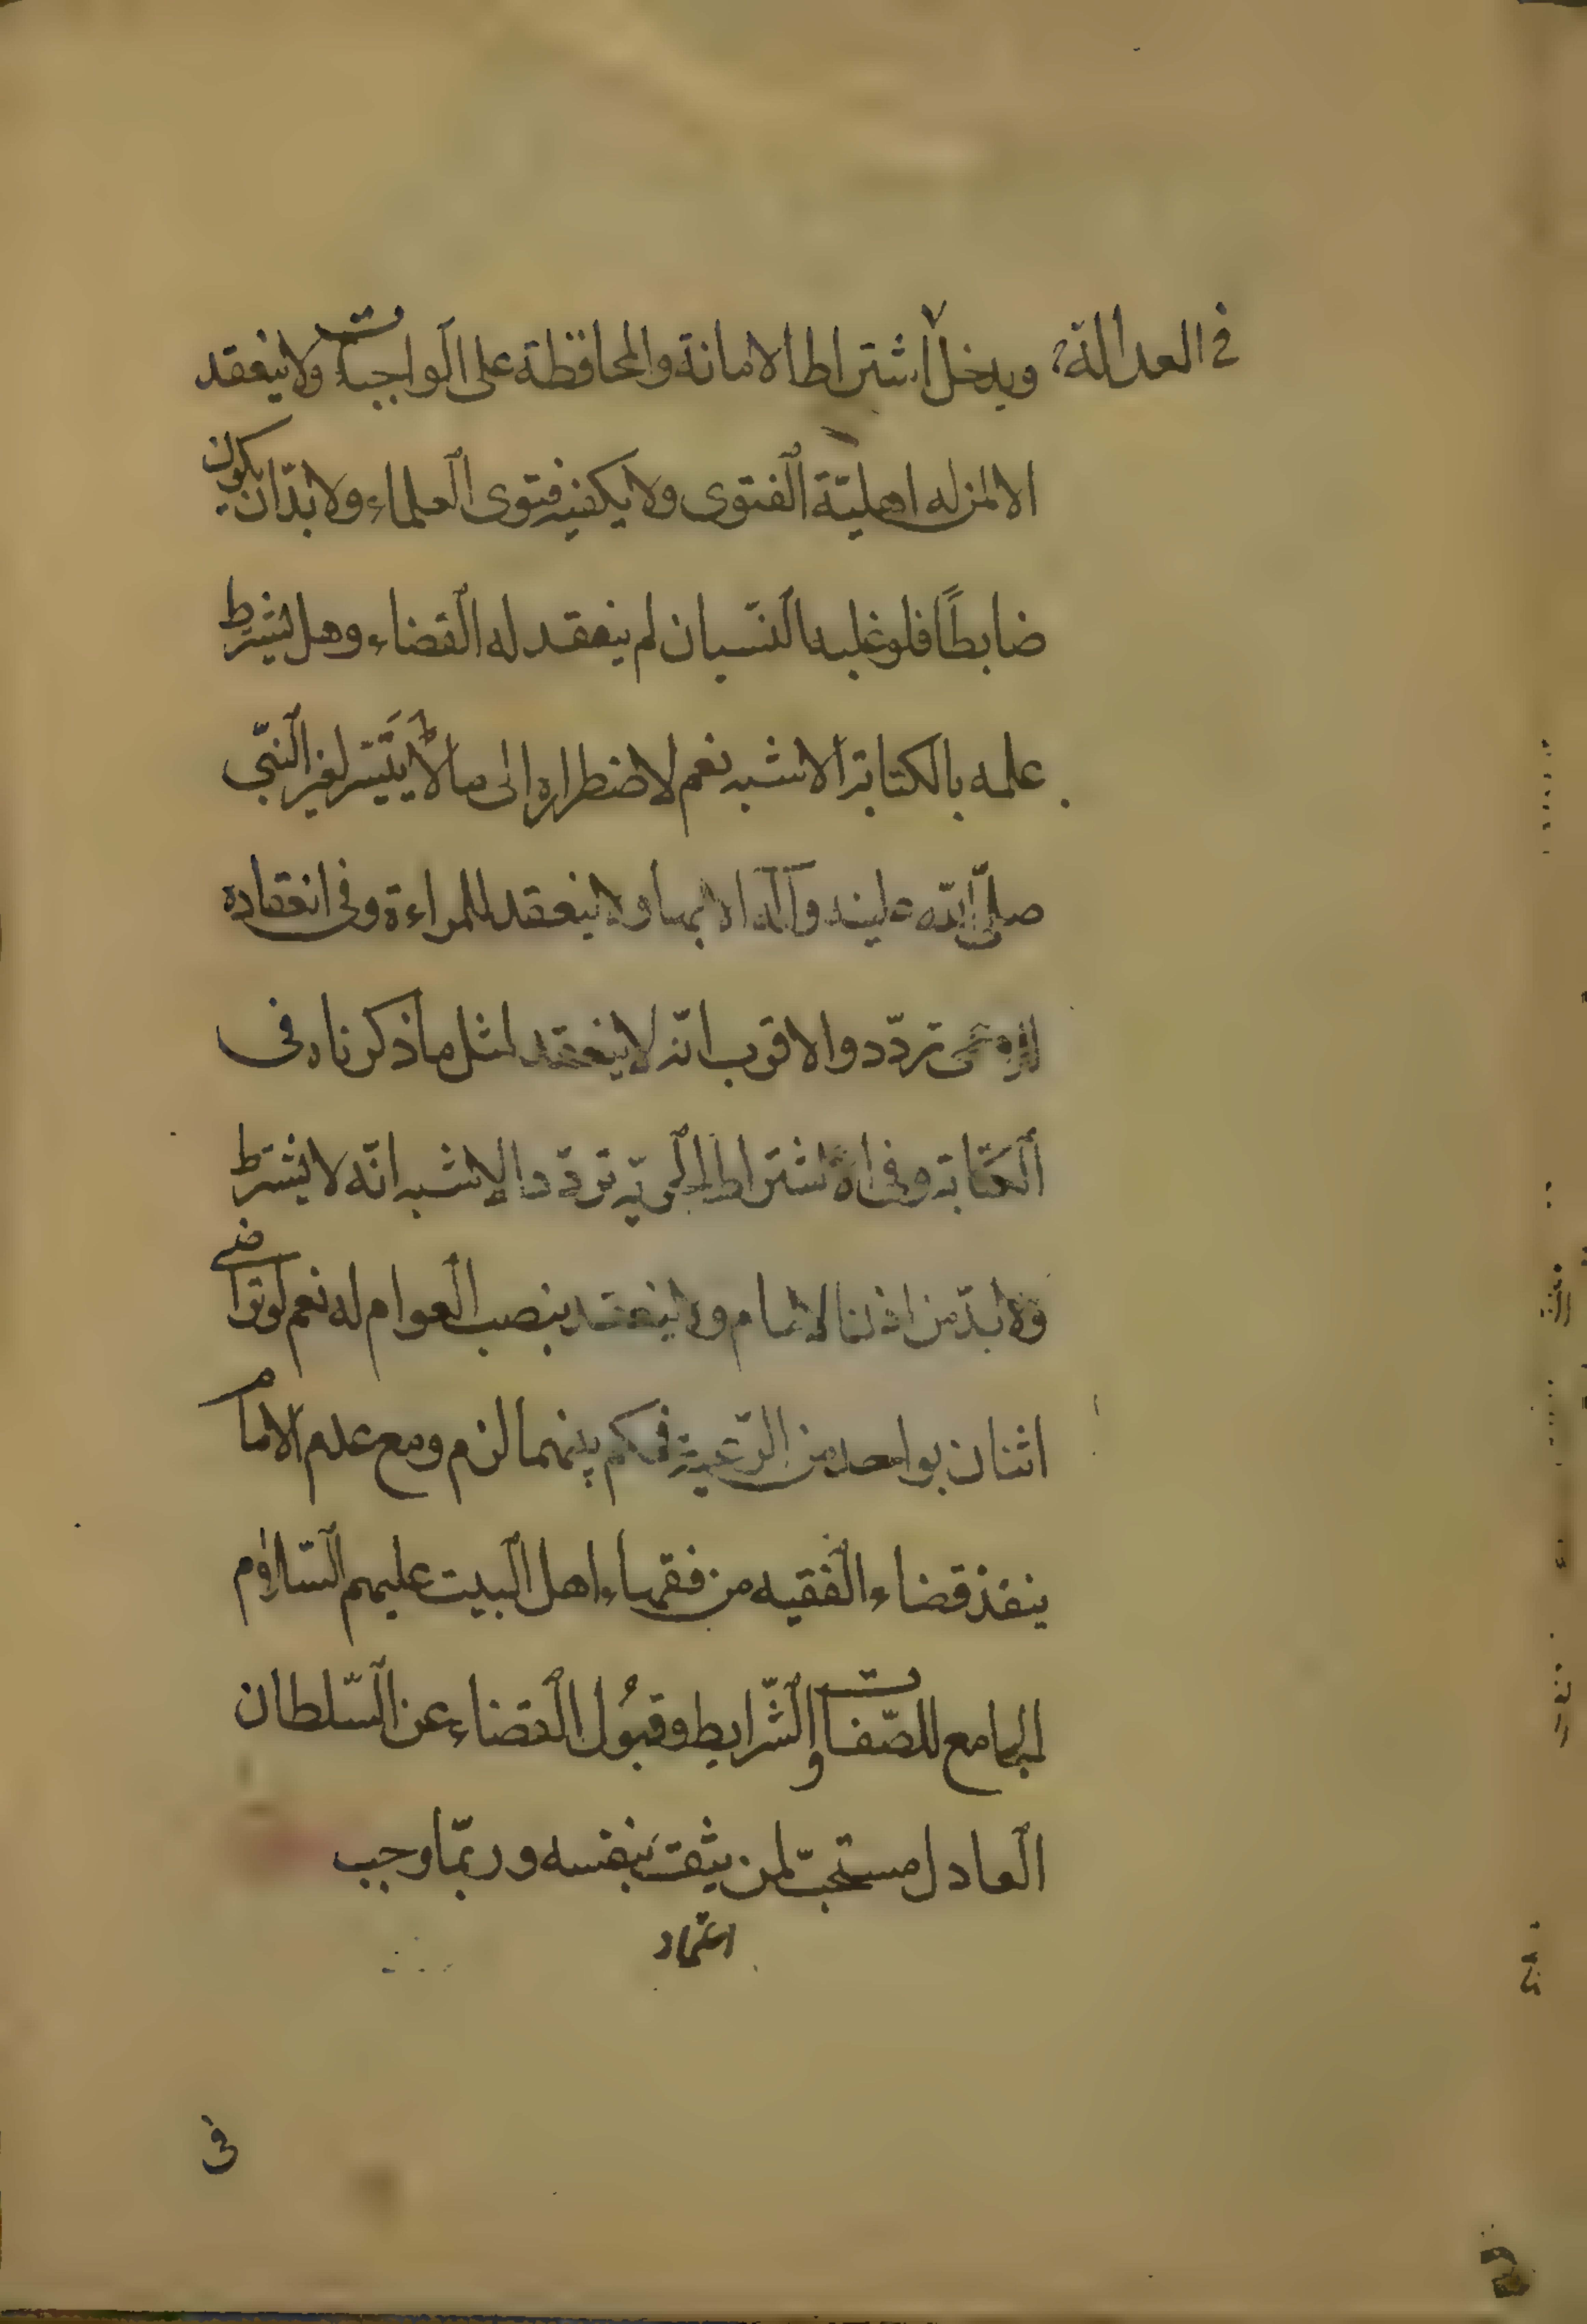 في العدالة ويدخل اشتراط الامانة والمحافظة على الواجبات ولا ينعقد
الا لمن له اهليّة الفتوى ولا يكفيه فتوى العلماء ولا بدّ ان يكون
ضابطًا فلو غلبه النّسيان لم ينعقد له القضاء وهل يشترط
علمه بالكتابة الاشبه نعم لاضطراره الى ما لا يتيسّر لغير النبّي
صلّى اللّه عليه وآله الا بها ولا ينعقد للمراءة وفى انعقاده
للاعمى تردّد والاقرب انّه لا ينعقد لمثل ما ذكرناه فى
الكتابة وفى اشتراط الحريّة تردّد الاشبه انّه لا يشترط
ولا بدّ من اذن الامام ولا ينعقد بنصب العوام له نعم لو تراضى
اثنان بواحد من الرّعية فحكم بينهما لزم ومع عدم الامام
ينفذ قضاء الفقيه من فقهاء اهل البيت عليهم السّلام
الجامع للصّفات والشّرايط وقبُول القضاء عن السّلطان
العادل مستحبّ لمن يثق بنفسه وربّما وجب
اعتماد
فى